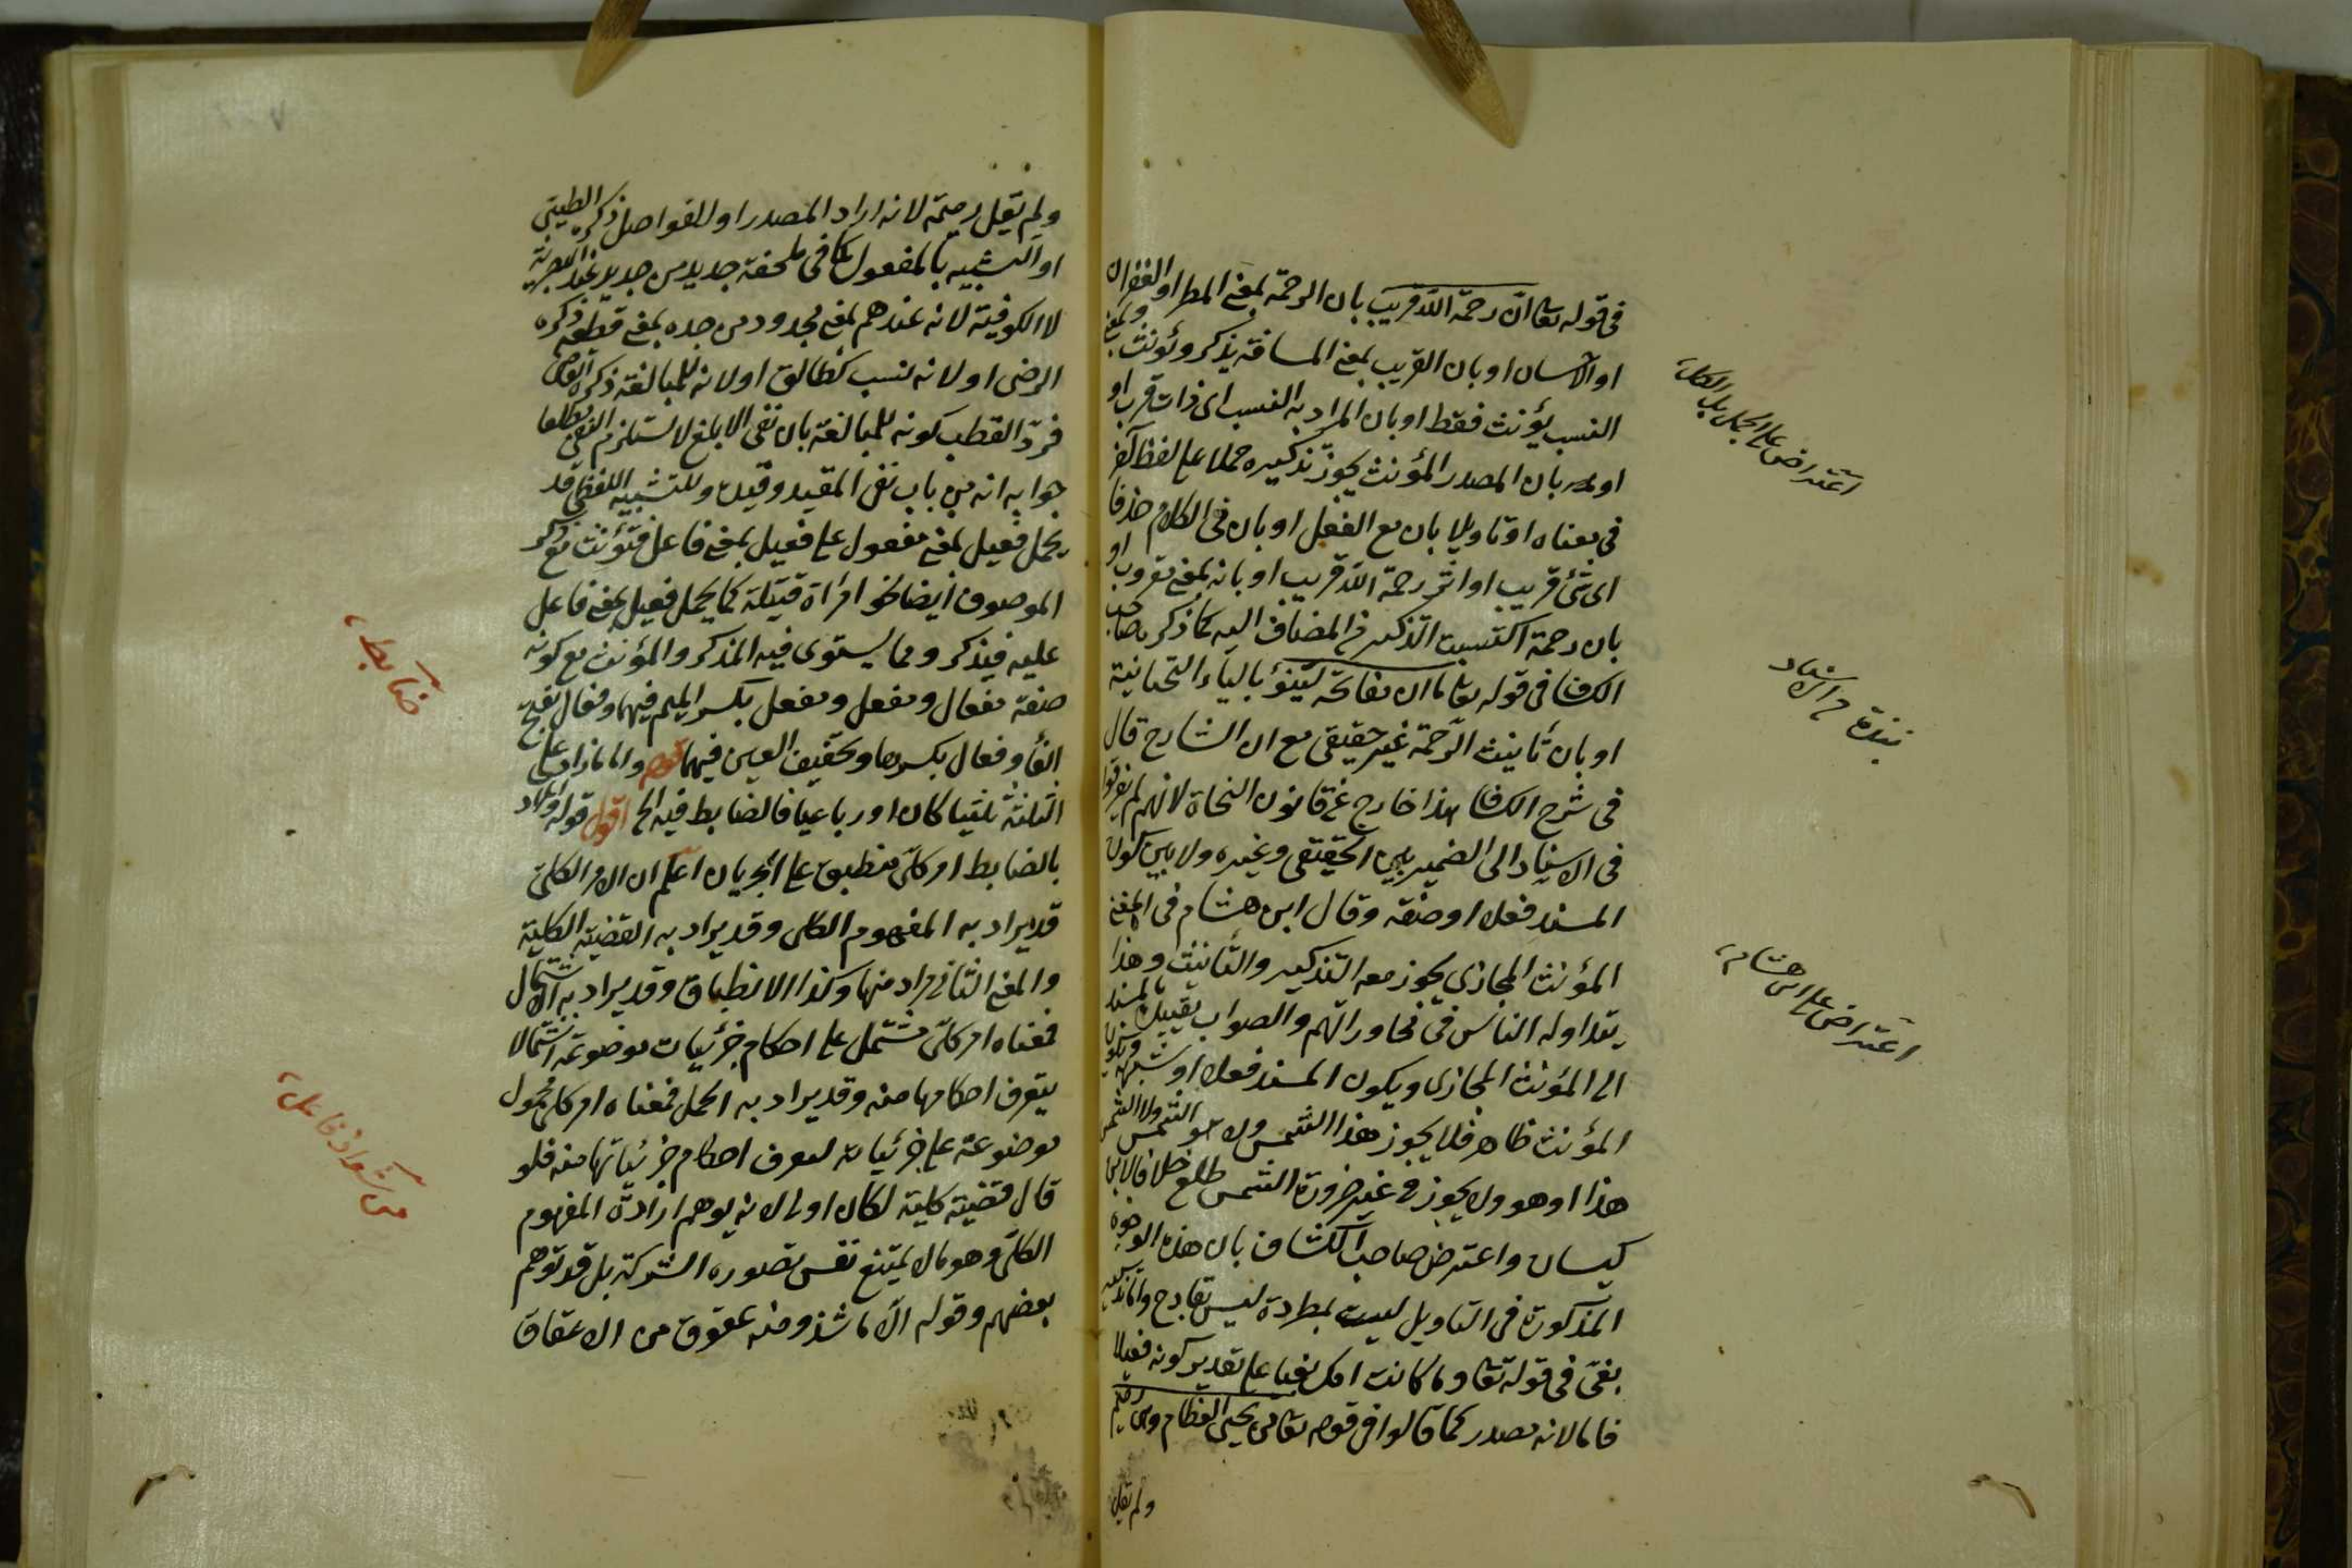 في قوله تعا ان رحمة الله قريب بان الرحمة بمعنى المطر او الغفران
او الاحسان او بان القريب بمعنى المسافة يذكر ويؤنث وبمعنى
النسب يؤنث فقط او بان المراد به النسب اى ذات قرب او
بان المصدر المؤنث يجوز تذكيره حملا على لفظ آخر
في معناه او تاويلا بان مع الفعل او بان في الكلام حذفا
اى شئ قريب او اثر رحمة الله قريب او بانه بمعنى او
بان رحمة اكتسبت التذكير من المضاف اليه كما ذكر صاحب
الكشاف في قوله تعا ما ان مفاتحه لينوء بالياء التحتانية
او بان تأنيث الرحمة غير حقيقى مع ان الشارح قال
في شرح الكشاف هذا خارج عن قانون النحاة لانهم لم يفرقوا
في الاسناد الى الضمير بين الحقيقى وغيره ولا بين كون
المسند فعلا او صفة وقال ابن هشام في المغنى
المؤنث المجازى يجوز معه التذكير والتأنيث وهذا
يتداوله الناس في محاوراتهم والصواب تقييده بالمسند
الى المؤنث المجازى ويكون المسند فعلا او شبهه ويكون
المؤنث ظاهرا فلا يجوز هذا الشمس ولا هو الشمس ولا الشمس
هذا او هو ولا يجوز في غير ضرورة الشمس طلع خلافا لابن
كيسان واعترض صاحب الكشاف بان هذه الوجوه
المذكورة في التاويل ليست بمطردة ليس بقادح واما تذكير
بغى في قوله تعا وما كانت امك بغيا على تقدير كونه فعيلا
فاما لانه مصدر كما قالوا في قوله تعا من يحيى العظام وهى رميم
ولم يقل
اعتراض على الجمل بل الكل
نبذة من الاسناد
اعتراض على ابن هشام
ولم يقل رميمة لانه اراد المصدر او للفواصل ذكره الطيبى
او لتشبيه بالمفعول كما في ملحفة جديد من جديد عند البصرية
لا الكوفية لانه عندهم بمعنى مجدود من جده بمعنى قطعه ذكره
الرضى او لانه نسب كطالق او لانه للمبالغة ذكره القاضى
فردّ القطب كونه للمبالغة بان نفى الابلغ لا يستلزم النفى مطلقا
جوابه انه من باب نفى المقيد وقيده وللتشبيه اللفظى قد
يحمل فعيل بمعنى مفعول على فعيل بمعنى فاعل فيؤنث مع ذكر
الموصوف ايضا نحو امرأة قتيلة كما يحمل فعيل بمعنى فاعل
عليه فيذكر ومما يستوى فيه المذكر والمؤنث مع كونه
صفة مفعال ومفعل ومفعل بكسر الميم فيهما وفعال بفتح
الفاء وفعال بكسرها وتخفيف العين فيهما قوله واما ما زاد على
الثلثة ثلثيا كان او رباعيا فالضابط فيه الخ اقول قوله والمراد
بالضابط امر كلى منطبق على الجزئيات اعلم ان الامر الكلى
قد يراد به المفهوم الكلى وقد يراد به القضية الكلية
والمعنى الثانى مراد منها وكذا الانطباق وقد يراد به الاشتمال
فمعناه امر كلى مشتمل على احكام جزئيات موضوعة اشتمالا
يتعرف احكامها منه وقد يراد به الحمل فمعناه امر كلى محمول
موضوعه على جزئياته ليعرف احكام جزئياتها منه فلو
قال قضية كلية لكان اولى لانه يوهم ارادة المفهوم
الكلى وهو ما لا يمتنع نفس تصوره الشركة بل قد توهم
بعضهم وقوله الّا ما شذ ومنه عقوق من الاعقاق
ضابط
من شواذ فاعل